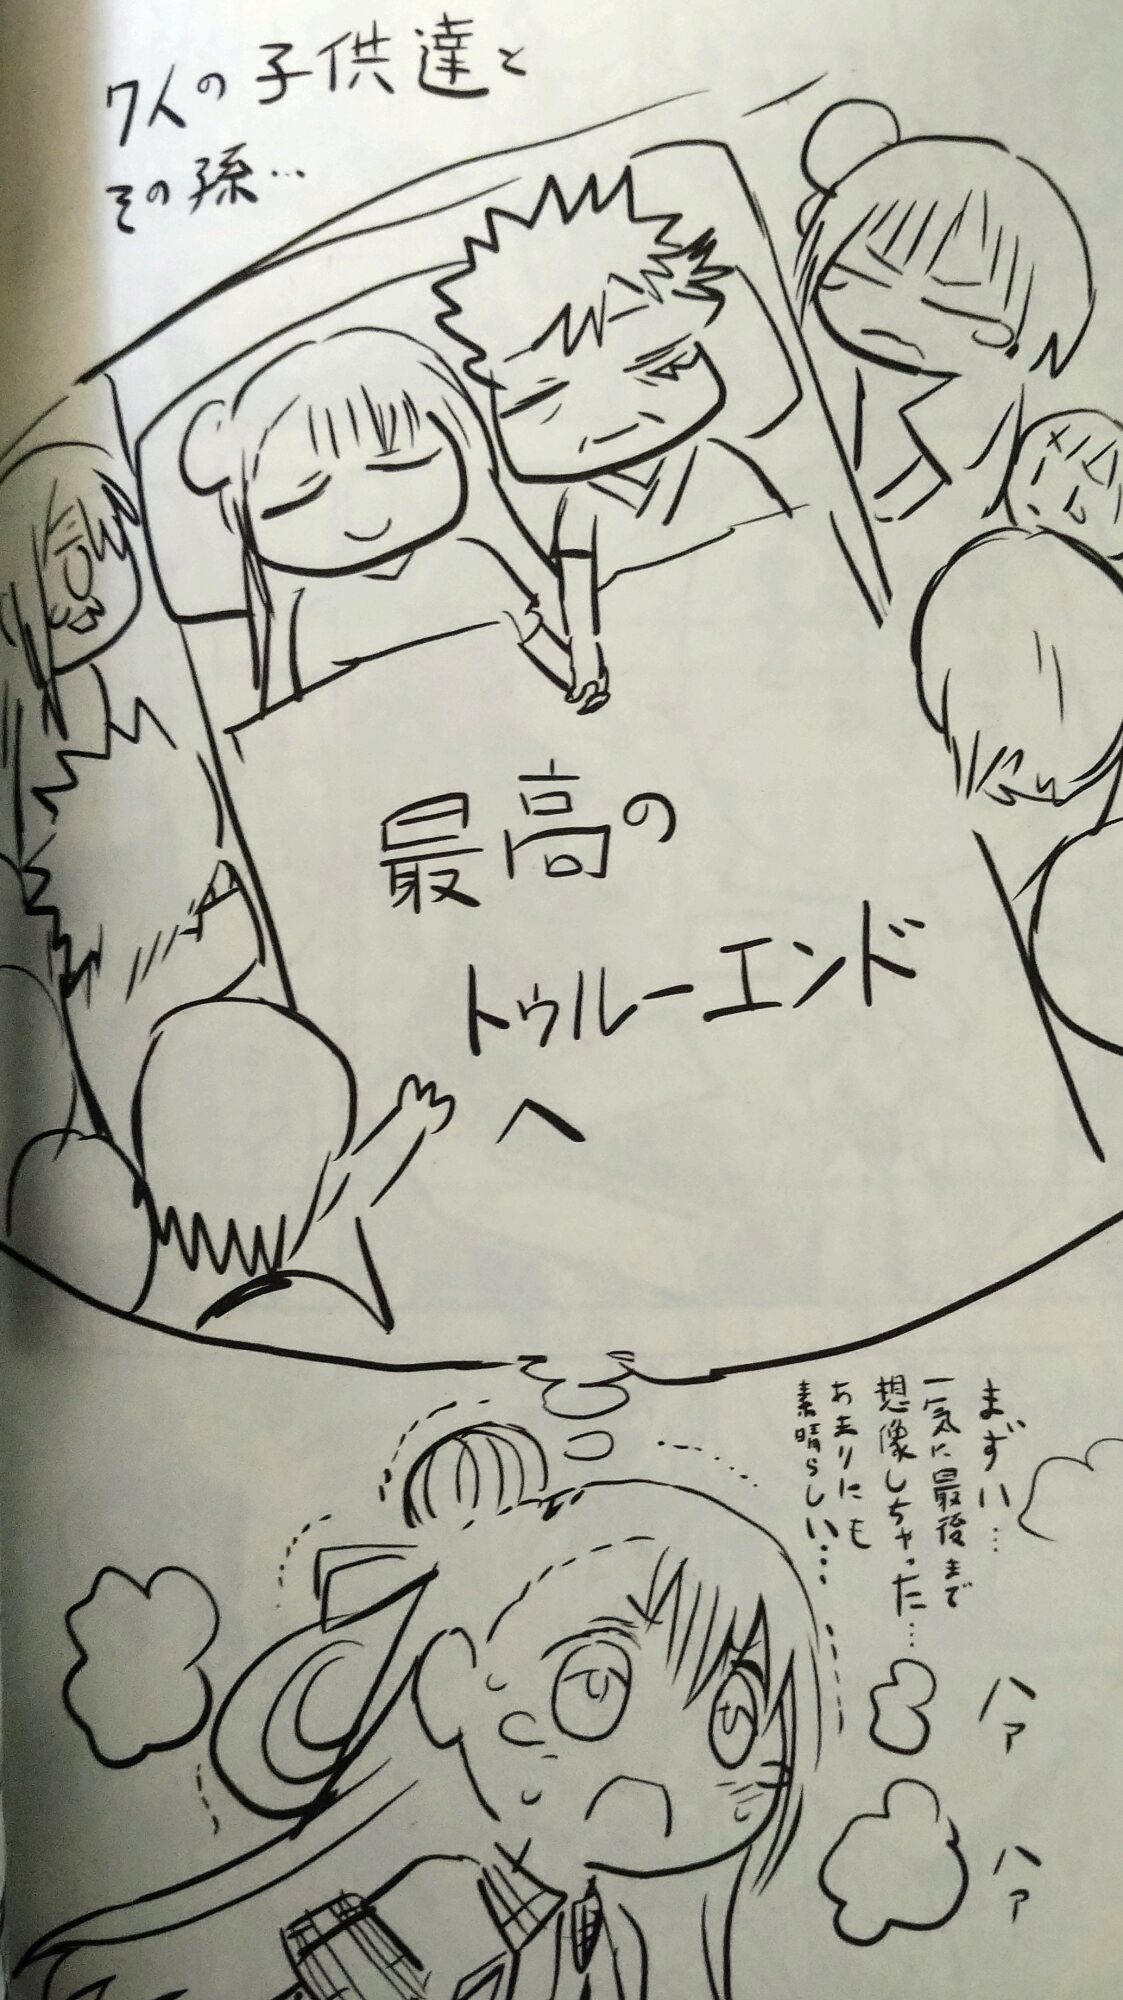 7人の子供達と
その孫…
最高の
トゥルーエンド
へ
まずい…
一気に最後まで
想像しちゃった…
あまりにも
素晴らしい…
ハァ
ハァ